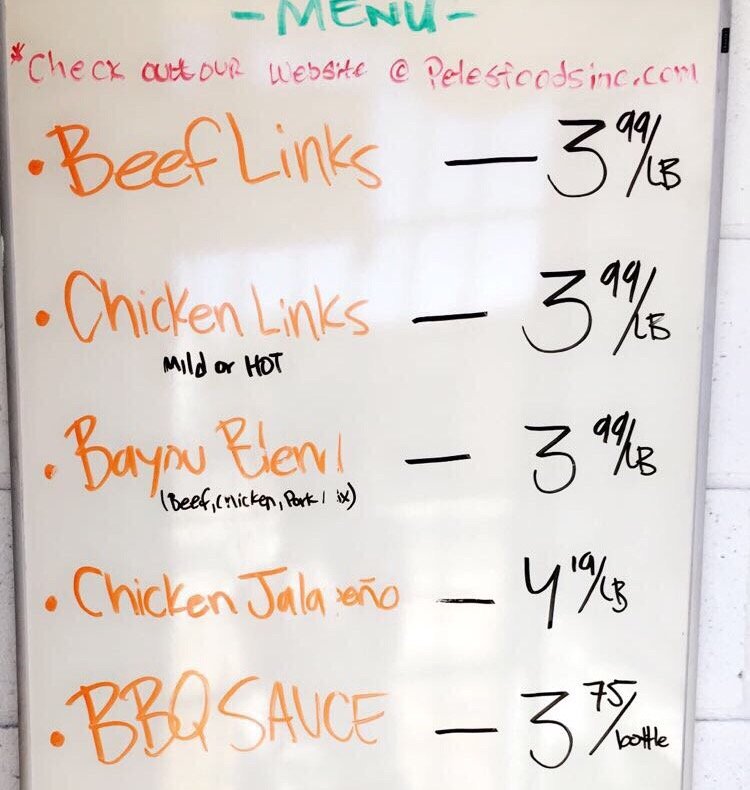 - MENU -
*Check out our website @ Pelesfoodsinc.com
• Beef Links — 3 99/LB
• Chicken Links — 3 99/LB
Mild or HOT
• Bayou Blend — 3 99/LB
(Beef, Chicken, Pork
• Chicken Jalapeño — 4 19/LB
• BBQ SAUCE — 3 75/bottle